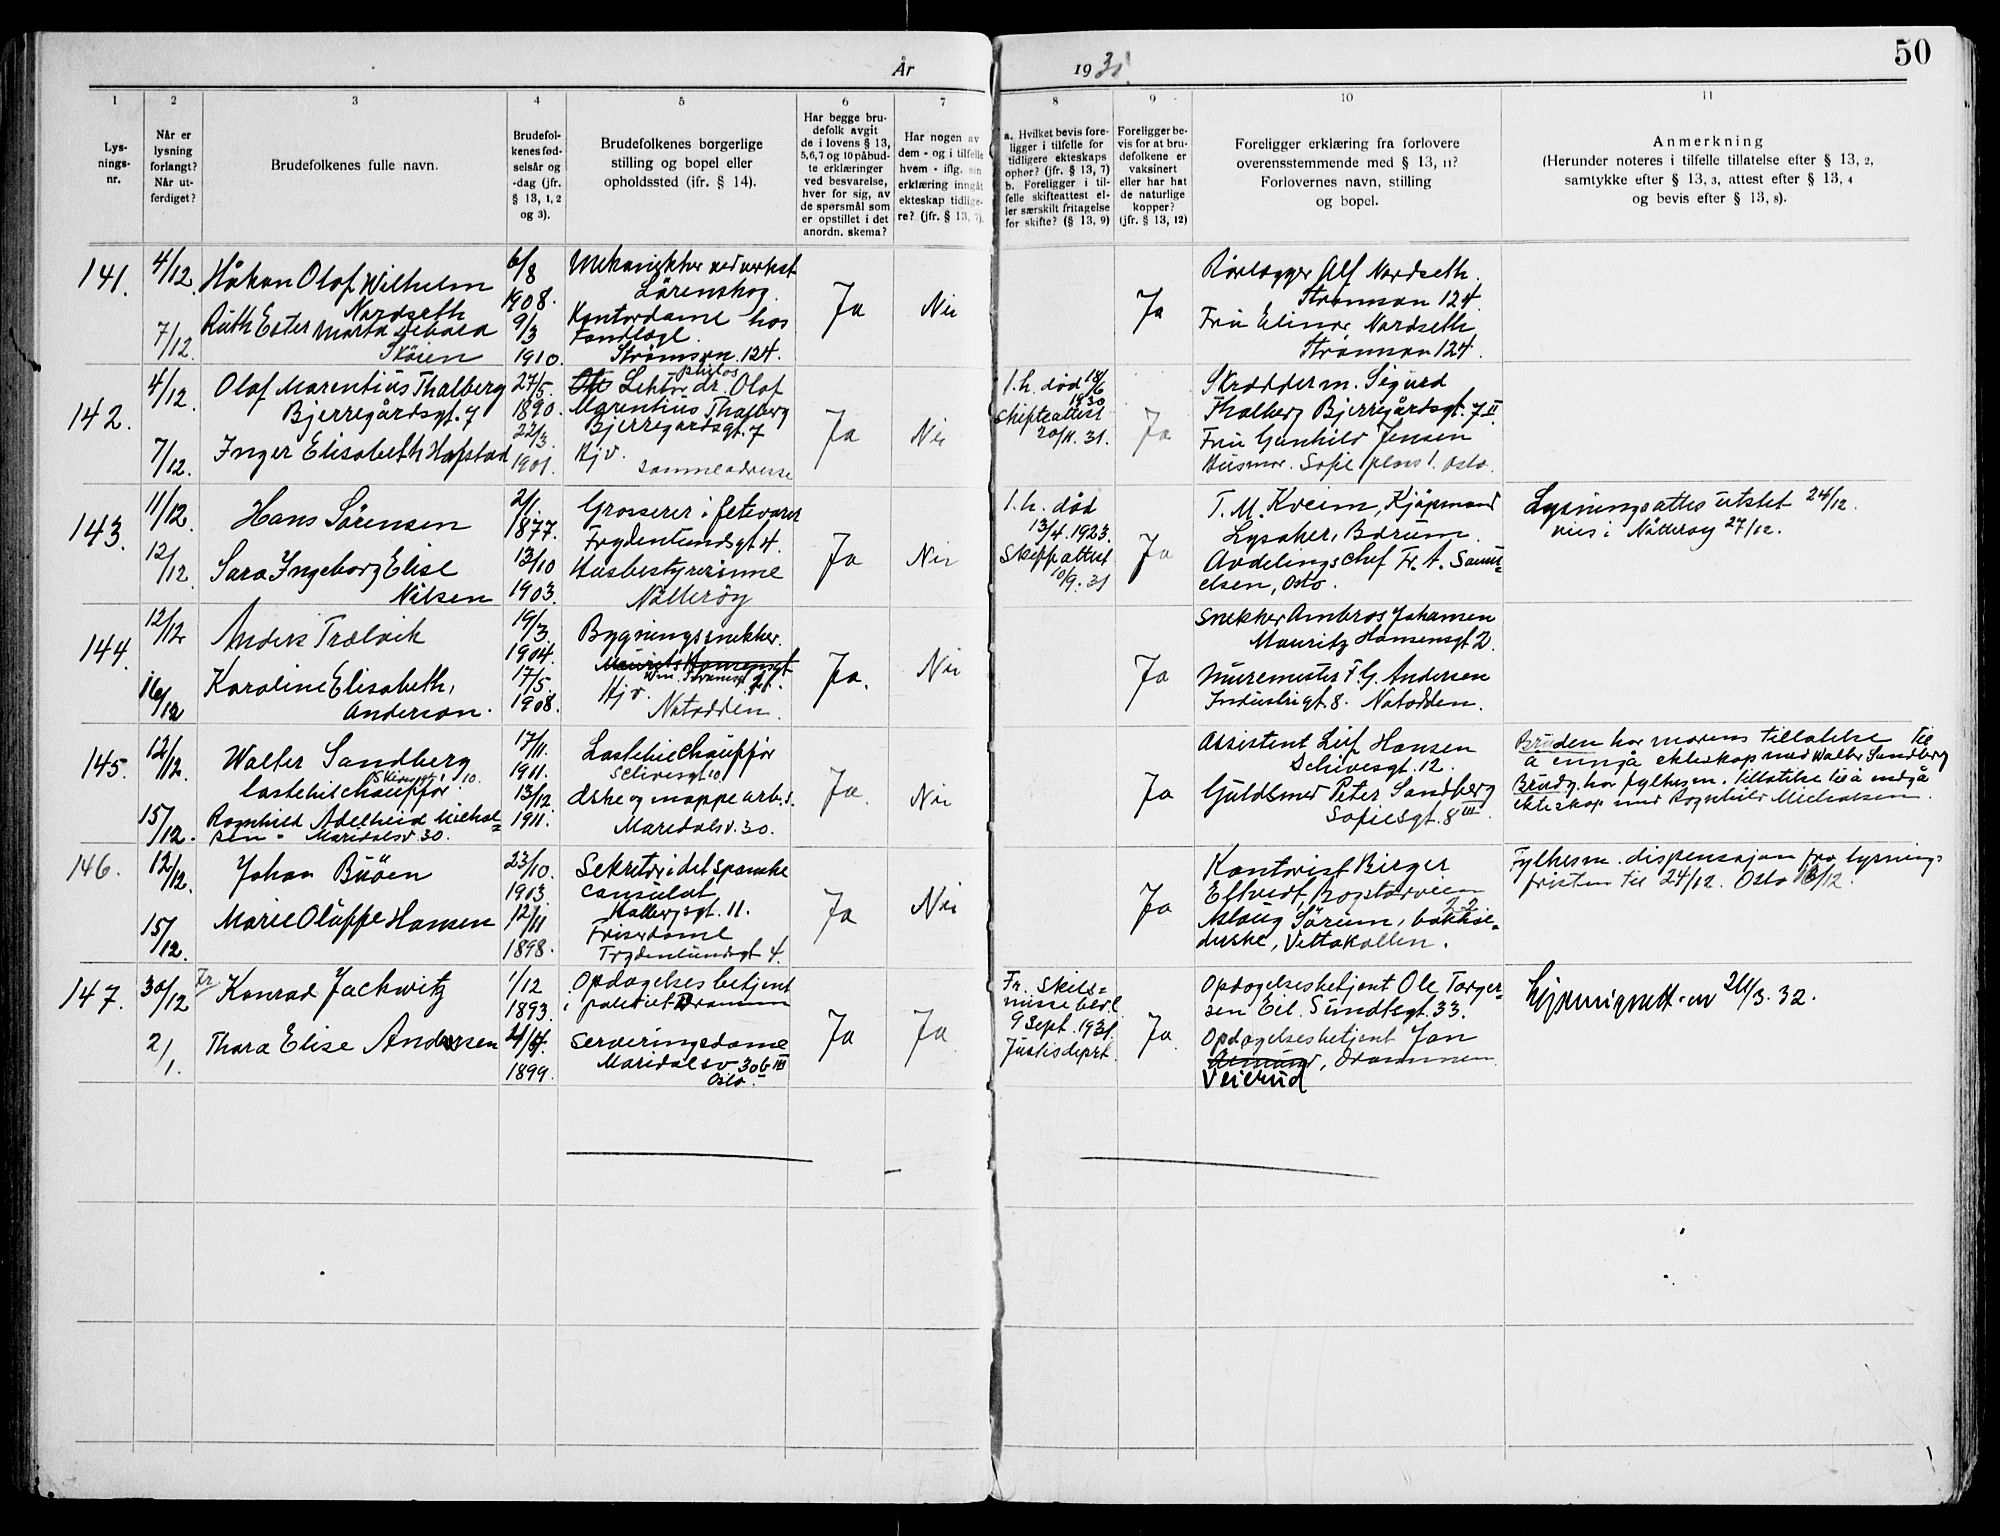 50
År 1931.
1
2
3
4
5
6
7
8
9
10
11
Lys-
nings-
nr.
Når er
lysning
forlangt?
Når ut-
ferdiget?
Brudefolkenes fulle navn.
Brudefol-
kenes fød-
selsår og
-dag (jfr.
§ 13, 1, 2
og 3).
Brudefolkenes borgerlige
stilling og bopel eller
opholdssted (jfr. § 14).
Har begge bru-
defolk avgit
de i lovens § 13,
5,6,7 og 10 påbud-
te erklæringer
ved besvarelse,
hver for sig, av
de spørsmål som
er opstillet i det
anordn. skema?
Har nogen av
dem - og i tilfelle
hvem - iflg. sin
erklæring inngåt
ekteskap tidlige-
re? (jfr. § 13, 7).
a. Hvilket bevis fore-
ligger i tilfelle for
tidligere ekteskaps
ophør? (jfr. § 13, 7)
b. Foreligger i til-
felle skifteattest el-
ler særskilt fritagelse
for skifte? (§ 13, 9)
Foreligger be-
vis for at bru-
defolkene er
vaksinert
eller har hat
de naturlige
kopper?
(jfr. § 13, 12)
Foreligger erklæring fra forlovere
overensstemmende med § 13, 11?
Forlovernes navn, stilling
og bopel.
Anmerkning
(Herunder noteres i tilfelle tillatelse efter § 13, 2,
samtykke efter § 13, 3, attest efter § 13, 4
og bevis efter § 13, 8).
141.
4/12.
7/12.
Håkon Olof Wilhelm
Nordseth
Ruth Ester Marta
Skóien
6/8
1908.
9/3
1910.
Lörenskog.
Kontordame hos
Strömsvn. 124.
Ja
Nei
Ja
Rörlegger Alf Nordseth
Strömsvn 124.
Fru Elinor Nordseth
Strömsvn 124.
142.
4/12.
7/12.
Olaf Marentius Thalberg
Bjerregårdsgt. 7
Inger Elisabeth Hofstad
27/5.
1890.
22/3.
1901.
philos
Lektor dr. Olaf
Marentius Thalberg
Bjerregårdsgt. 7
Hj v.
samme adresse
Ja
Nei
1. h. död 18/6
1930
Skifteattest
20/11. 31.
Ja
Skreddern. Sigurd
Thalberg Bjerregårdsgt. 7 II
Fru Gunhild Jensen
Husmor. Sofie plass 1. Oslo.
143.
11/12.
12/12
Hans Sörensen
Sara Ingeborg Elise
Nilsen
2/1.
1877.
13/10
1903.
Grosserer i fetevarer
Frydenlundsgt 4.
Husbestyrerinne
Nötteröy
Ja
Nei
1. h. död
13/4. 1923.
Skifteattest
10/9. 31
Ja
T. M. Kveim, Kjöpmand
Lysaker, Bærum.
Avdelingschef Fr. A. Samu-
elsen, Oslo.
Lysningsattes utstet 24/12.
vies i Nötteröy 27/12.
144.
12/12
16/12
Anders Trælvik
Karoline Elisabeth,
Anderson.
19/3.
1904.
17/5.
1908.
Bygningssnekker.
Maurits Hansensgt
Hj v.
Notodden.
Ja.
Nei
Ja
Snekker Ambros Johansen
Mauritz Hansensgt 2.
Murermester F. G. Andersen
Industrigt. 8. Notodden.
145.
12/12.
15/12.
Walter Sandberg
Schivesgt. 10.
lastebilchauffør
Ragnhild Adelheid Michal-
sen - Maridalsv. 30.
17/11.
1911.
13/12.
1911.
Lastebilchauffør
Schivesgt 10
Eske og mappearb.
Maridalsv. 30.
Ja.
Nei
Ja
Assistent Leif Hansen
Schivesgt. 12.
Guldsmed Peter Sandberg
Sofiesgt. 8 III.
Bruden har morens tillatelse til
å inngå ekteskap med Walter Sandberg
Brudg. har fylkesm. tillatelse til å indgå
ekteskap med Ragnhild Michalsen.
146.
12/12.
15/12.
Johan Buöen
Marie Oluffe Hansen
23/10.
1903.
12/11
1898.
Sekretær i det spanske
consulat
Kalbergsgt. 11.
Friserdame
Frydenlundsgt 4.
Ja
Nei
Ja
Kontorist Birger
Eltvedt, Bogstadveien
22.
Aslaug Sörum, bakke-
duske, Vettakollen.
Fylkesm. dispensasjon fra lysnings-
fristen til 24/12. Oslo 18/12.
147.
30/12
2/1.
Fr
Konrad Jackwitz
Thora Elise Andersen
1/12
1893.
24/4.
1899.
Opdagelsesbetjent
i politiet Drammen
Serveringsdame
Maridalsv 30b III
Oslo.
Ja
Ja
Fr. Skils=
misse bevil.
9 Sept. 1931.
Justisdeprt.
Ja.
Opdagelsesbetjent Ole Torger-
sen Eil. Sundtsgt. 33.
Opdagelsesbetjent Jon
Drammen
Veierud
26/3. 32.